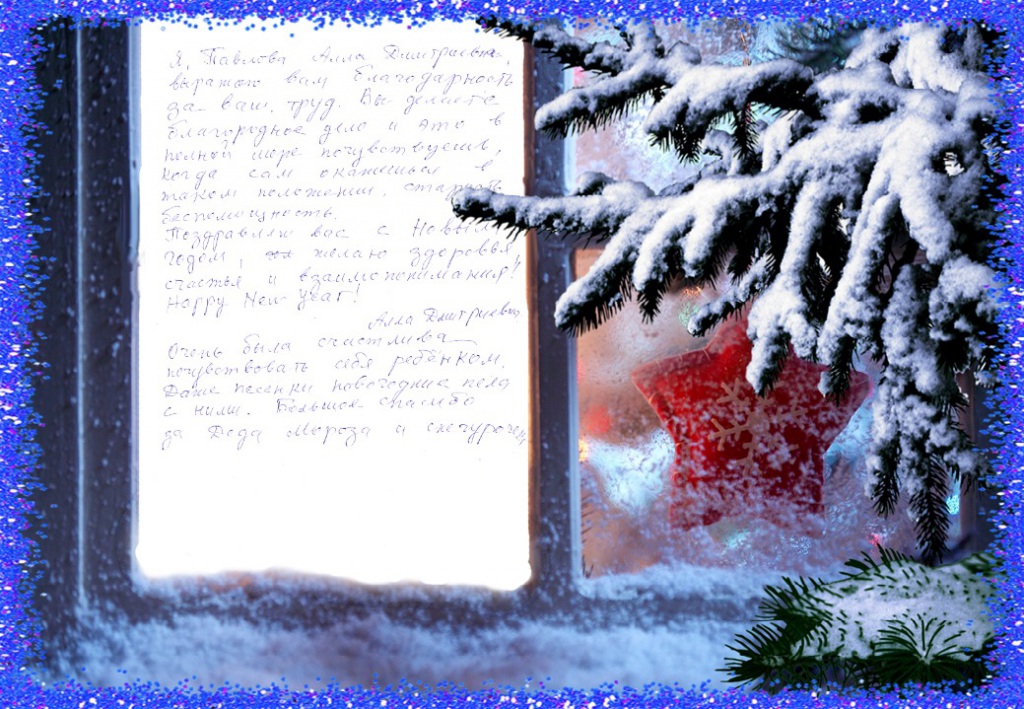 Я, Павлова Алла Дмитриевна,
выражаю вам благодарность
за ваш труд. Вы делаете
благородное дело и это в
полной мере почувствуешь,
когда сам окажешься в
таком положении, старость
беспомощность.
Поздравляю вас с Новым
годом, желаю здоровья
счастья и взаимопонимания!
Happy New Year!
Алла Дмитриевна
Очень была счастлива
почувствовать себя ребёнком.
Даже песенки новогодние пела
с ними. Большое спасибо
за Деда Мороза и снегурочку